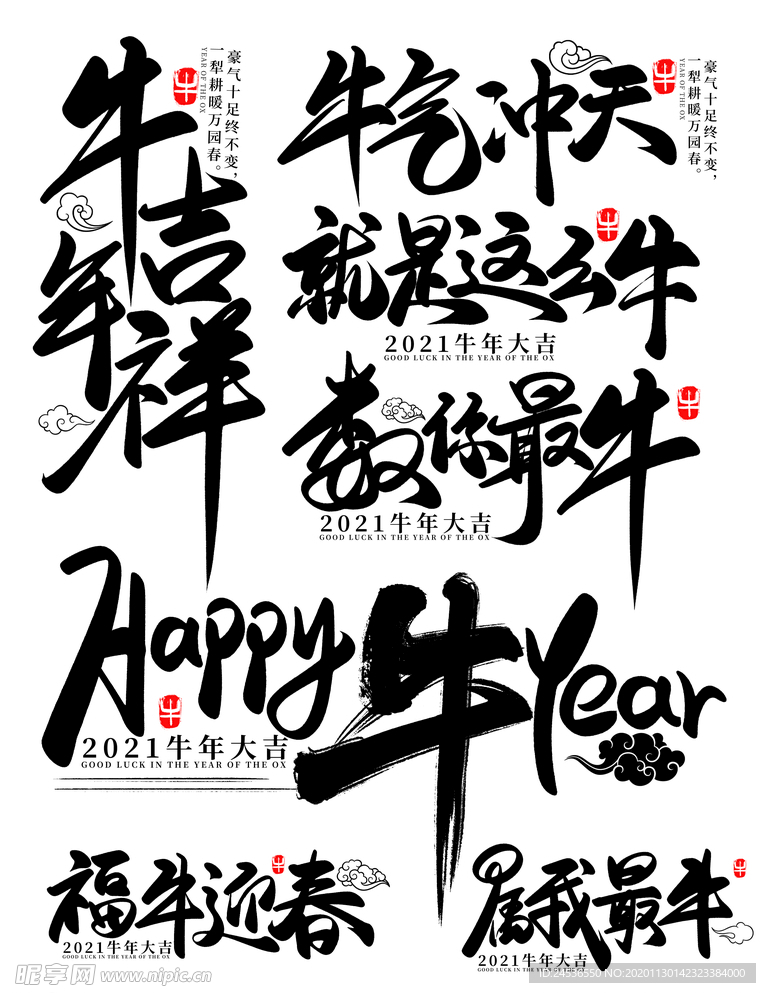 牛年吉祥
牛
豪气十足终不变，
一犁耕暖万园春。
YEAR OF THE OX
牛气冲天
牛
豪气十足终不变，
一犁耕暖万园春。
YEAR OF THE OX
就是这么牛
牛
2021牛年大吉
GOOD LUCK IN THE YEAR OF THE OX
数你最牛
牛
2021牛年大吉
GOOD LUCK IN THE YEAR OF THE OX
Happy牛Year
牛
2021牛年大吉
GOOD LUCK IN THE YEAR OF THE OX
福牛迎春
牛
2021牛年大吉
GOOD LUCK IN THE YEAR OF THE OX
属我最牛
牛
2021牛年大吉
GOOD LUCK IN THE YEAR OF THE OX
昵享网 www.nipic.cn
ID:24536550 NO:20201130142323384000